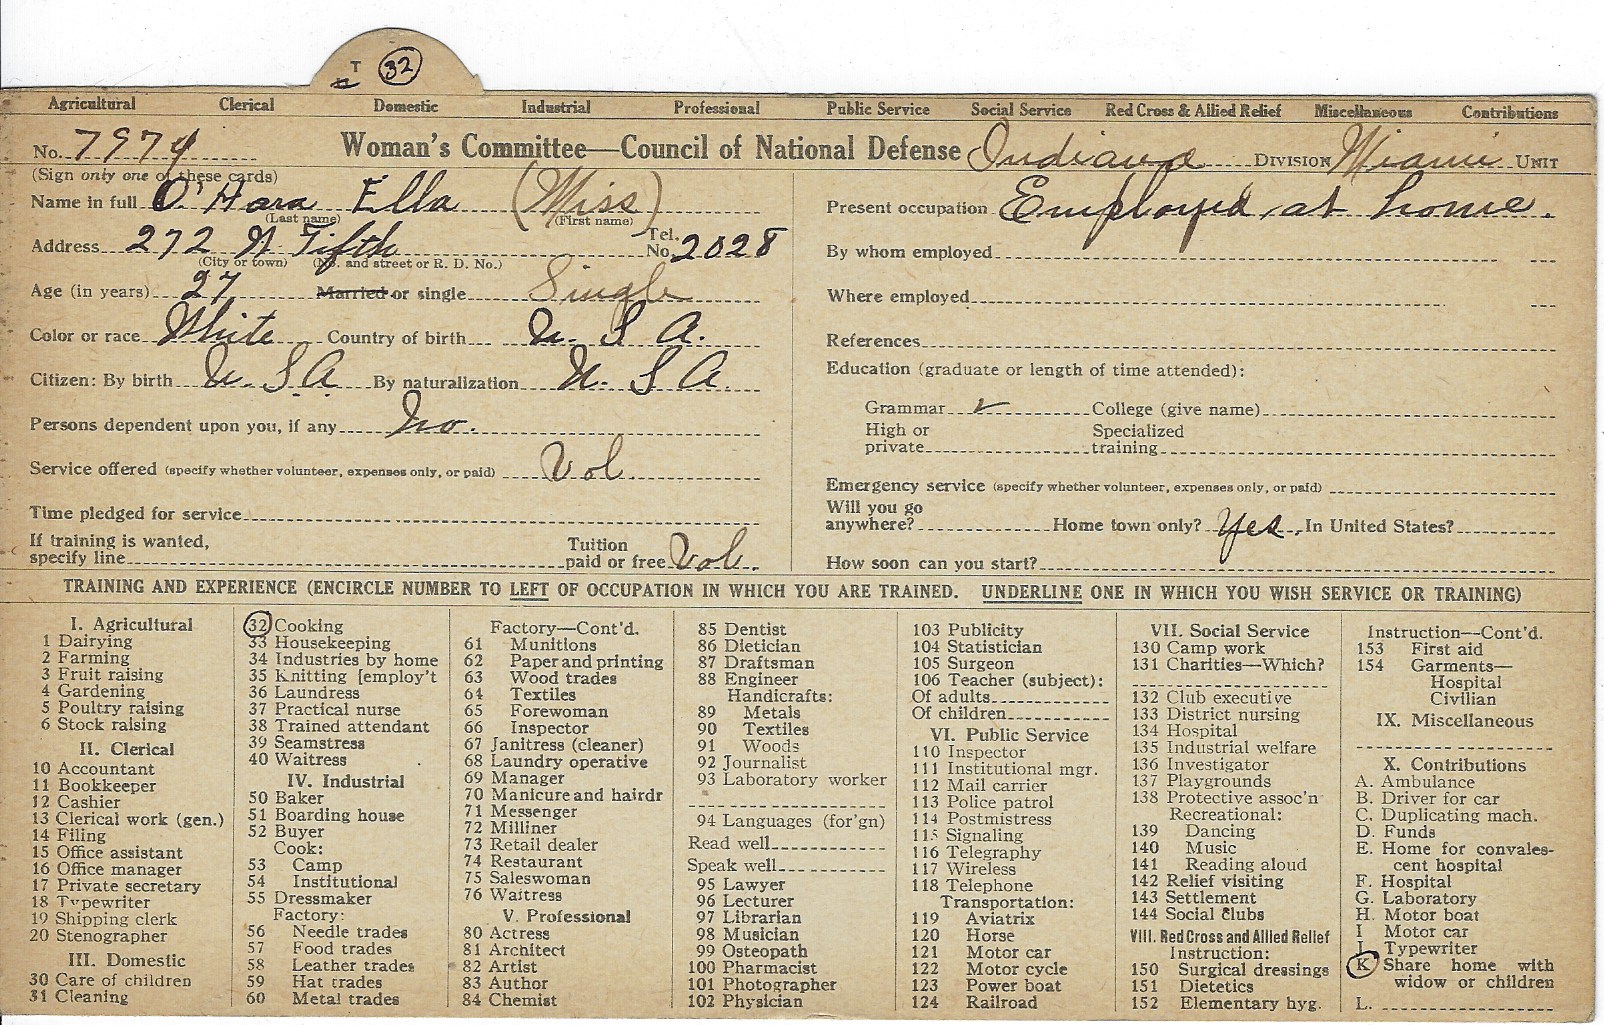 T 32
Agricultural Clerical Domestic Industrial Professional Public Service Social Service Red Cross & Allied Relief Miscellaneous Contributions
No. 7974 Woman's Committee—Council of National Defense Indiana Division Miami Unit
(Sign only one of these cards)
Name in full O'Hara Ella (Miss)
(Last name) (First name)
Address 272 N Fifth Tel. No. 2028
(City or town) (No. and street or R. D. No.)
Age (in years) 27 Married or single Single
Color or race White Country of birth U. S A.
Citizen: By birth U. S A By naturalization U. S A
Persons dependent upon you, if any No.
Service offered (specify whether volunteer, expenses only, or paid) Vol.
Time pledged for service
If training is wanted, specify line Tuition paid or free Vol.
Present occupation Employed at home.
By whom employed
Where employed
References
Education (graduate or length of time attended):
Grammar ✓ College (give name)
High or private Specialized training
Emergency service (specify whether volunteer, expenses only, or paid)
Will you go anywhere? Home town only? Yes. In United States?
How soon can you start?
TRAINING AND EXPERIENCE (ENCIRCLE NUMBER TO LEFT OF OCCUPATION IN WHICH YOU ARE TRAINED. UNDERLINE ONE IN WHICH YOU WISH SERVICE OR TRAINING)
I. Agricultural
1 Dairying
2 Farming
3 Fruit raising
4 Gardening
5 Poultry raising
6 Stock raising
II. Clerical
10 Accountant
11 Bookkeeper
12 Cashier
13 Clerical work (gen.)
14 Filing
15 Office assistant
16 Office manager
17 Private secretary
18 Typewriter
19 Shipping clerk
20 Stenographer
III. Domestic
30 Care of children
31 Cleaning
32 Cooking
33 Housekeeping
34 Industries by home
35 Knitting [employ't
36 Laundress
37 Practical nurse
38 Trained attendant
39 Seamstress
40 Waitress
IV. Industrial
50 Baker
51 Boarding house
52 Buyer
Cook:
53 Camp
54 Institutional
55 Dressmaker
Factory:
56 Needle trades
57 Food trades
58 Leather trades
59 Hat trades
60 Metal trades
Factory—Cont'd.
61 Munitions
62 Paper and printing
63 Wood trades
64 Textiles
65 Forewoman
66 Inspector
67 Janitress (cleaner)
68 Laundry operative
69 Manager
70 Manicure and hairdr
71 Messenger
72 Milliner
73 Retail dealer
74 Restaurant
75 Saleswoman
76 Waitress
V. Professional
80 Actress
81 Architect
82 Artist
83 Author
84 Chemist
85 Dentist
86 Dietician
87 Draftsman
88 Engineer
Handicrafts:
89 Metals
90 Textiles
91 Woods
92 Journalist
93 Laboratory worker
94 Languages (for'gn)
Read well
Speak well
95 Lawyer
96 Lecturer
97 Librarian
98 Musician
99 Osteopath
100 Pharmacist
101 Photographer
102 Physician
103 Publicity
104 Statistician
105 Surgeon
106 Teacher (subject):
Of adults
Of children
VI. Public Service
110 Inspector
111 Institutional mgr.
112 Mail carrier
113 Police patrol
114 Postmistress
115 Signaling
116 Telegraphy
117 Wireless
118 Telephone
Transportation:
119 Aviatrix
120 Horse
121 Motor car
122 Motor cycle
123 Power boat
124 Railroad
VII. Social Service
130 Camp work
131 Charities—Which?
132 Club executive
133 District nursing
134 Hospital
135 Industrial welfare
136 Investigator
137 Playgrounds
138 Protective assoc'n
Recreational:
139 Dancing
140 Music
141 Reading aloud
142 Relief visiting
143 Settlement
144 Social clubs
VIII. Red Cross and Allied Relief
Instruction:
150 Surgical dressings
151 Dietetics
152 Elementary hyg.
Instruction—Cont'd.
153 First aid
154 Garments—
Hospital
Civilian
IX. Miscellaneous
X. Contributions
A. Ambulance
B. Driver for car
C. Duplicating mach.
D. Funds
E. Home for convales-
cent hospital
F. Hospital
G. Laboratory
H. Motor boat
I Motor car
J. Typewriter
K Share home with
widow or children
L.